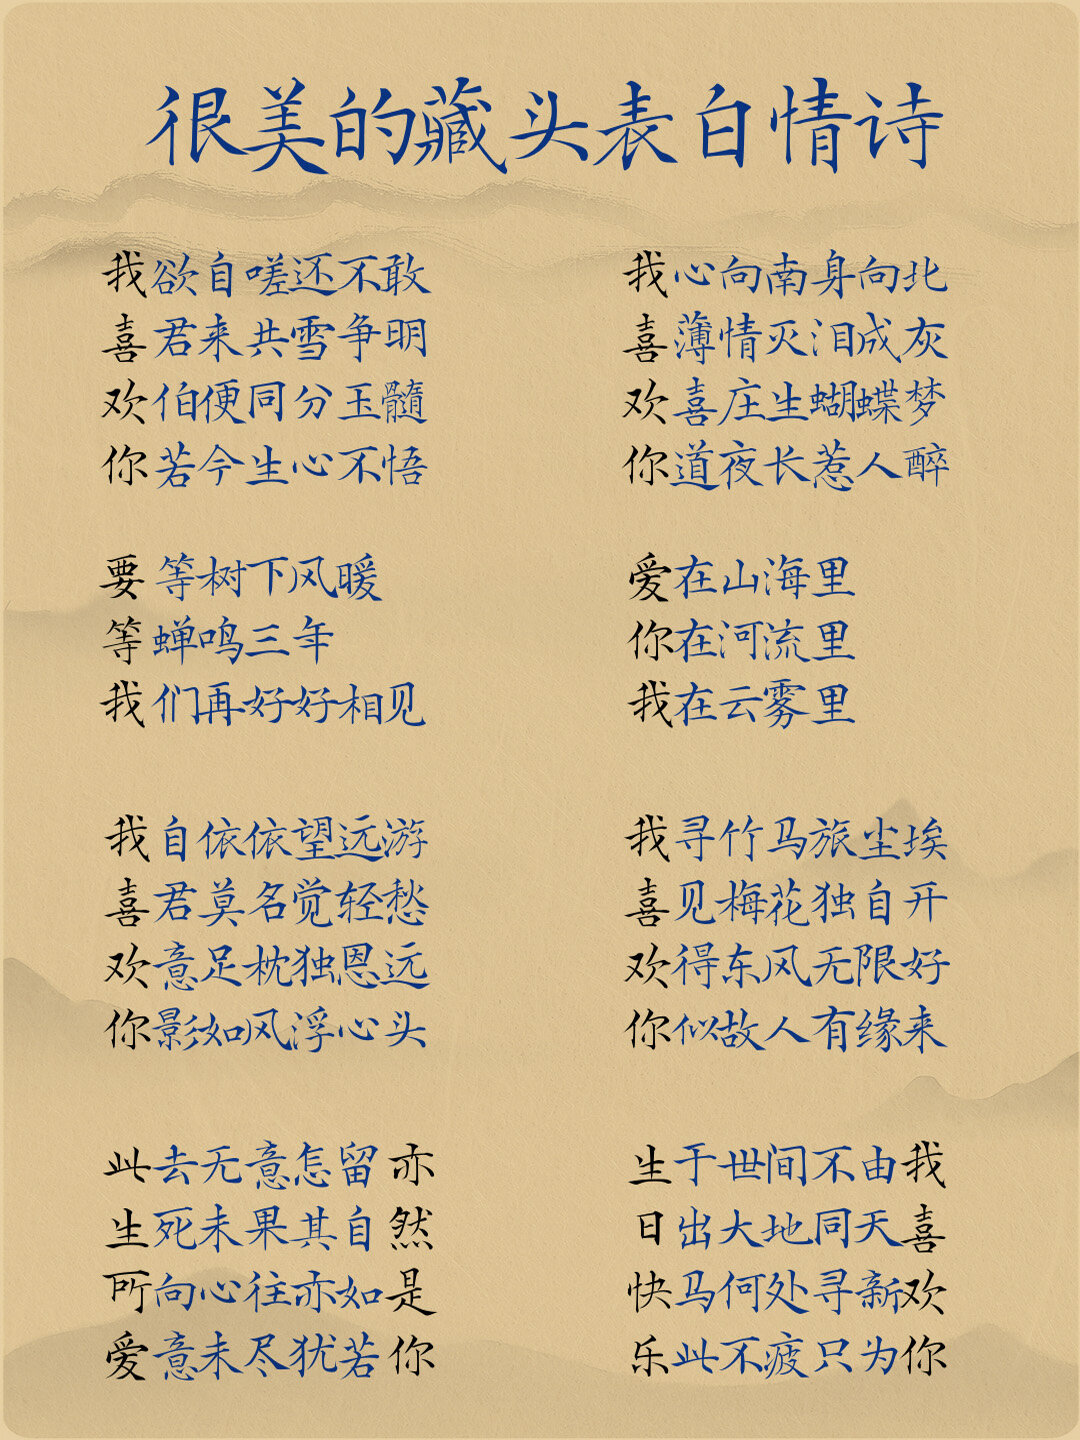 很美的藏头表白情诗
我欲自嗟还不敢
喜君来共雪争明
欢伯便同分玉髓
你若今生心不悟
我心向南身向北
喜薄情灭泪成灰
欢喜庄生蝴蝶梦
你道夜长惹人醉
要等树下风暖
等蝉鸣三年
我们再好好相见
爱在山海里
你在河流里
我在云雾里
我自依依望远游
喜君莫名觉轻愁
欢意足枕独恩远
你影如风浮心头
我寻竹马旅尘埃
喜见梅花独自开
欢得东风无限好
你似故人有缘来
此去无意怎留亦
生死未果其自然
所向心往亦如是
爱意未尽犹若你
生于世间不由我
日出大地同天喜
快马何处寻新欢
乐此不疲只为你